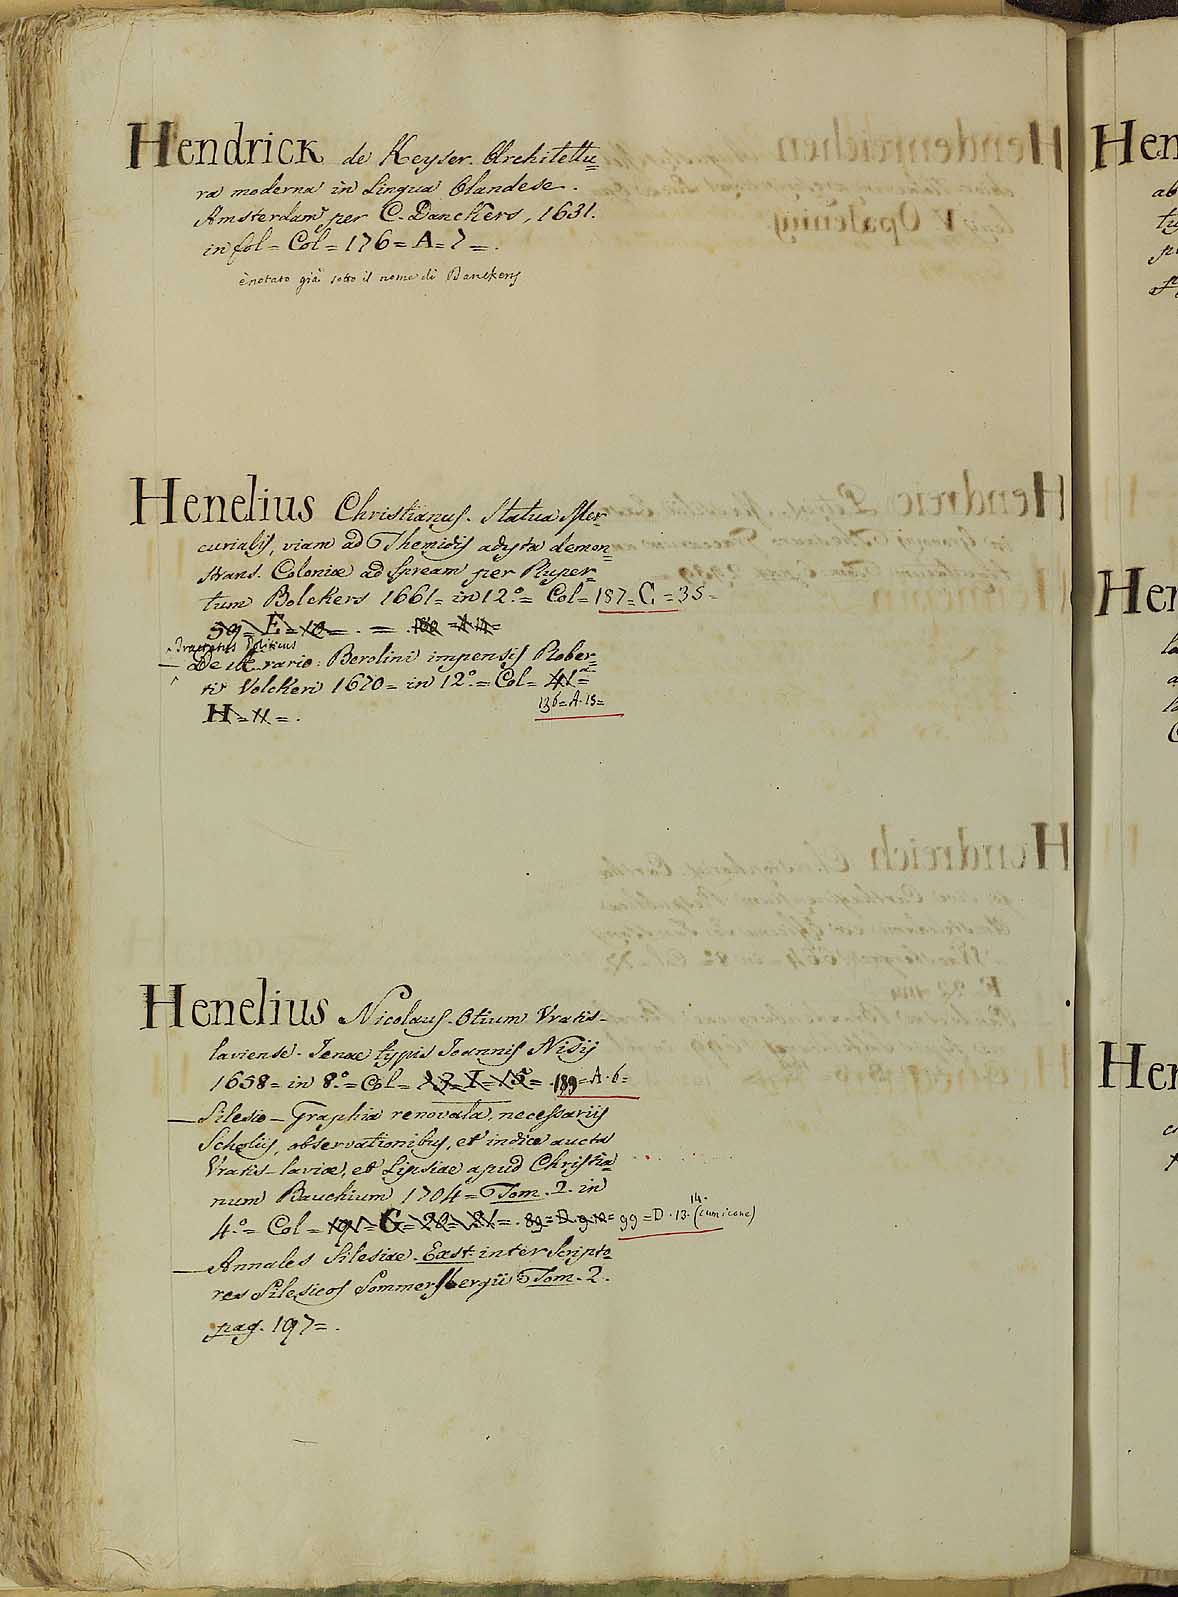 Hendrick de Keyser. Architettu=
ra moderna in Lingua Olandese.
Amsterdam per C. Danckers, 1631.
in fol = Col = 176 = A = 7 = .
è notato già sotto il nome di Banckers
Henelius Christianus. Statua Mer
curialis, viam ad Themidis adyta demon=
strans. Coloniae ad Spream per Ruper=
tum Bolckers 1661 = in 12.° = Col = 187 = C = 35 =
99 = E = 10 = . =
Tractatus Politicus
— De Aerario: Berolini impensis Rober=
ti Volckeri 1670 = in 12.° = Col = 41 =
H = 11 = . 136 = A. 15 =
Henelius Nicolaus. Otium Vratis=
laviense. Jenae typis Joannis Nisij
1658 = in 8.° = Col = 13 = I = 15 = . 189 = A. 6 =
— Silesio = Graphia renovata, necessariis
Scholiis, observationibus, et indice aucta
Vratis = laviae, et Lipsiae apud Christia=
num Bauchium 1704 = Tom. 2. in
4.° = Col = 191 = G = 20 = 21 = . 89 = D. 9. 10 = 99 = D. 13. 14. (cum icone)
— Annales Silesiae. Exst. inter Scripto=
res Silesicos Sommersbergii Tom. 2.
pag. 197 = .
Hen
Hen
Hen